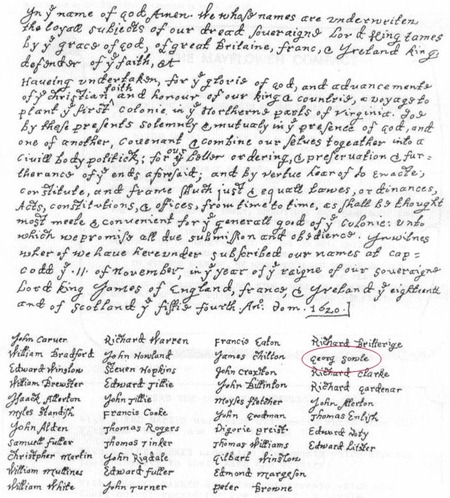 In yᵉ name of god Amen. We whose names are underwriten,
the loyall subjects of our dread soveraigne Lord King James
by yᵉ grace of god, of great Britaine, franc, & Ireland king,
defender of yᵉ faith, &c
Haveing undertaken, for yᵉ glorie of god, and advancemente
of yᵉ christian faith and honour of our king & countrie, a voyage to
plant yᵉ first colonie in yᵉ Northerne parts of Virginia. Doe
by these presents solemnly & mutualy in yᵉ presence of god, and
one of another, covenant, & combine our selves togeather into a
Civill body politick; for our better ordering, & preservation & fur-
therance of yᵉ ends aforesaid; and by vertue hearof to enacte,
constitute, and frame shuch just & equall Lawes, ordinances,
Acts, constitutions, & offices, from time to time, as shall be thought
most meete & convenient for yᵉ generall good of yᵉ Colonie: unto
which we promise all due submission and obedience. In witnes
wherof we have hereunder subscribed our names at Cap=
Codd yᵉ .11. of November, in yᵉ year of yᵉ raigne of our soveraigne
Lord king James of England, france, & Ireland yᵉ eighteenth
and of scotland yᵉ fiftie fourth. Ano. dom. 1620.
John Carver
William Bradford
Edward Winslow
William Brewster
Isaack Allerton
Myles Standish
John Alden
Samuell Fuller
Christopher Martin
William Mullines
William White
Richard Warren
John Howland
Steven Hopkins
Edward Tillie
John Tillie
Francis Cooke
Thomas Rogers
Thomas Tinker
John Rigdale
Edward Fuller
John Turner
Francis Eaton
James Chilton
John Craxton
John Billinton
Moyses Fletcher
John Goodman
Digorie Preist
Thomas Williams
Gilbart Winslow
Edmond Margeson
Peter Browne
Richard Britterige
Georg Sowle
Richard Clarke
Richard Gardenar
John Allerton
Thomas Enlish
Edward Doty
Edward Litster